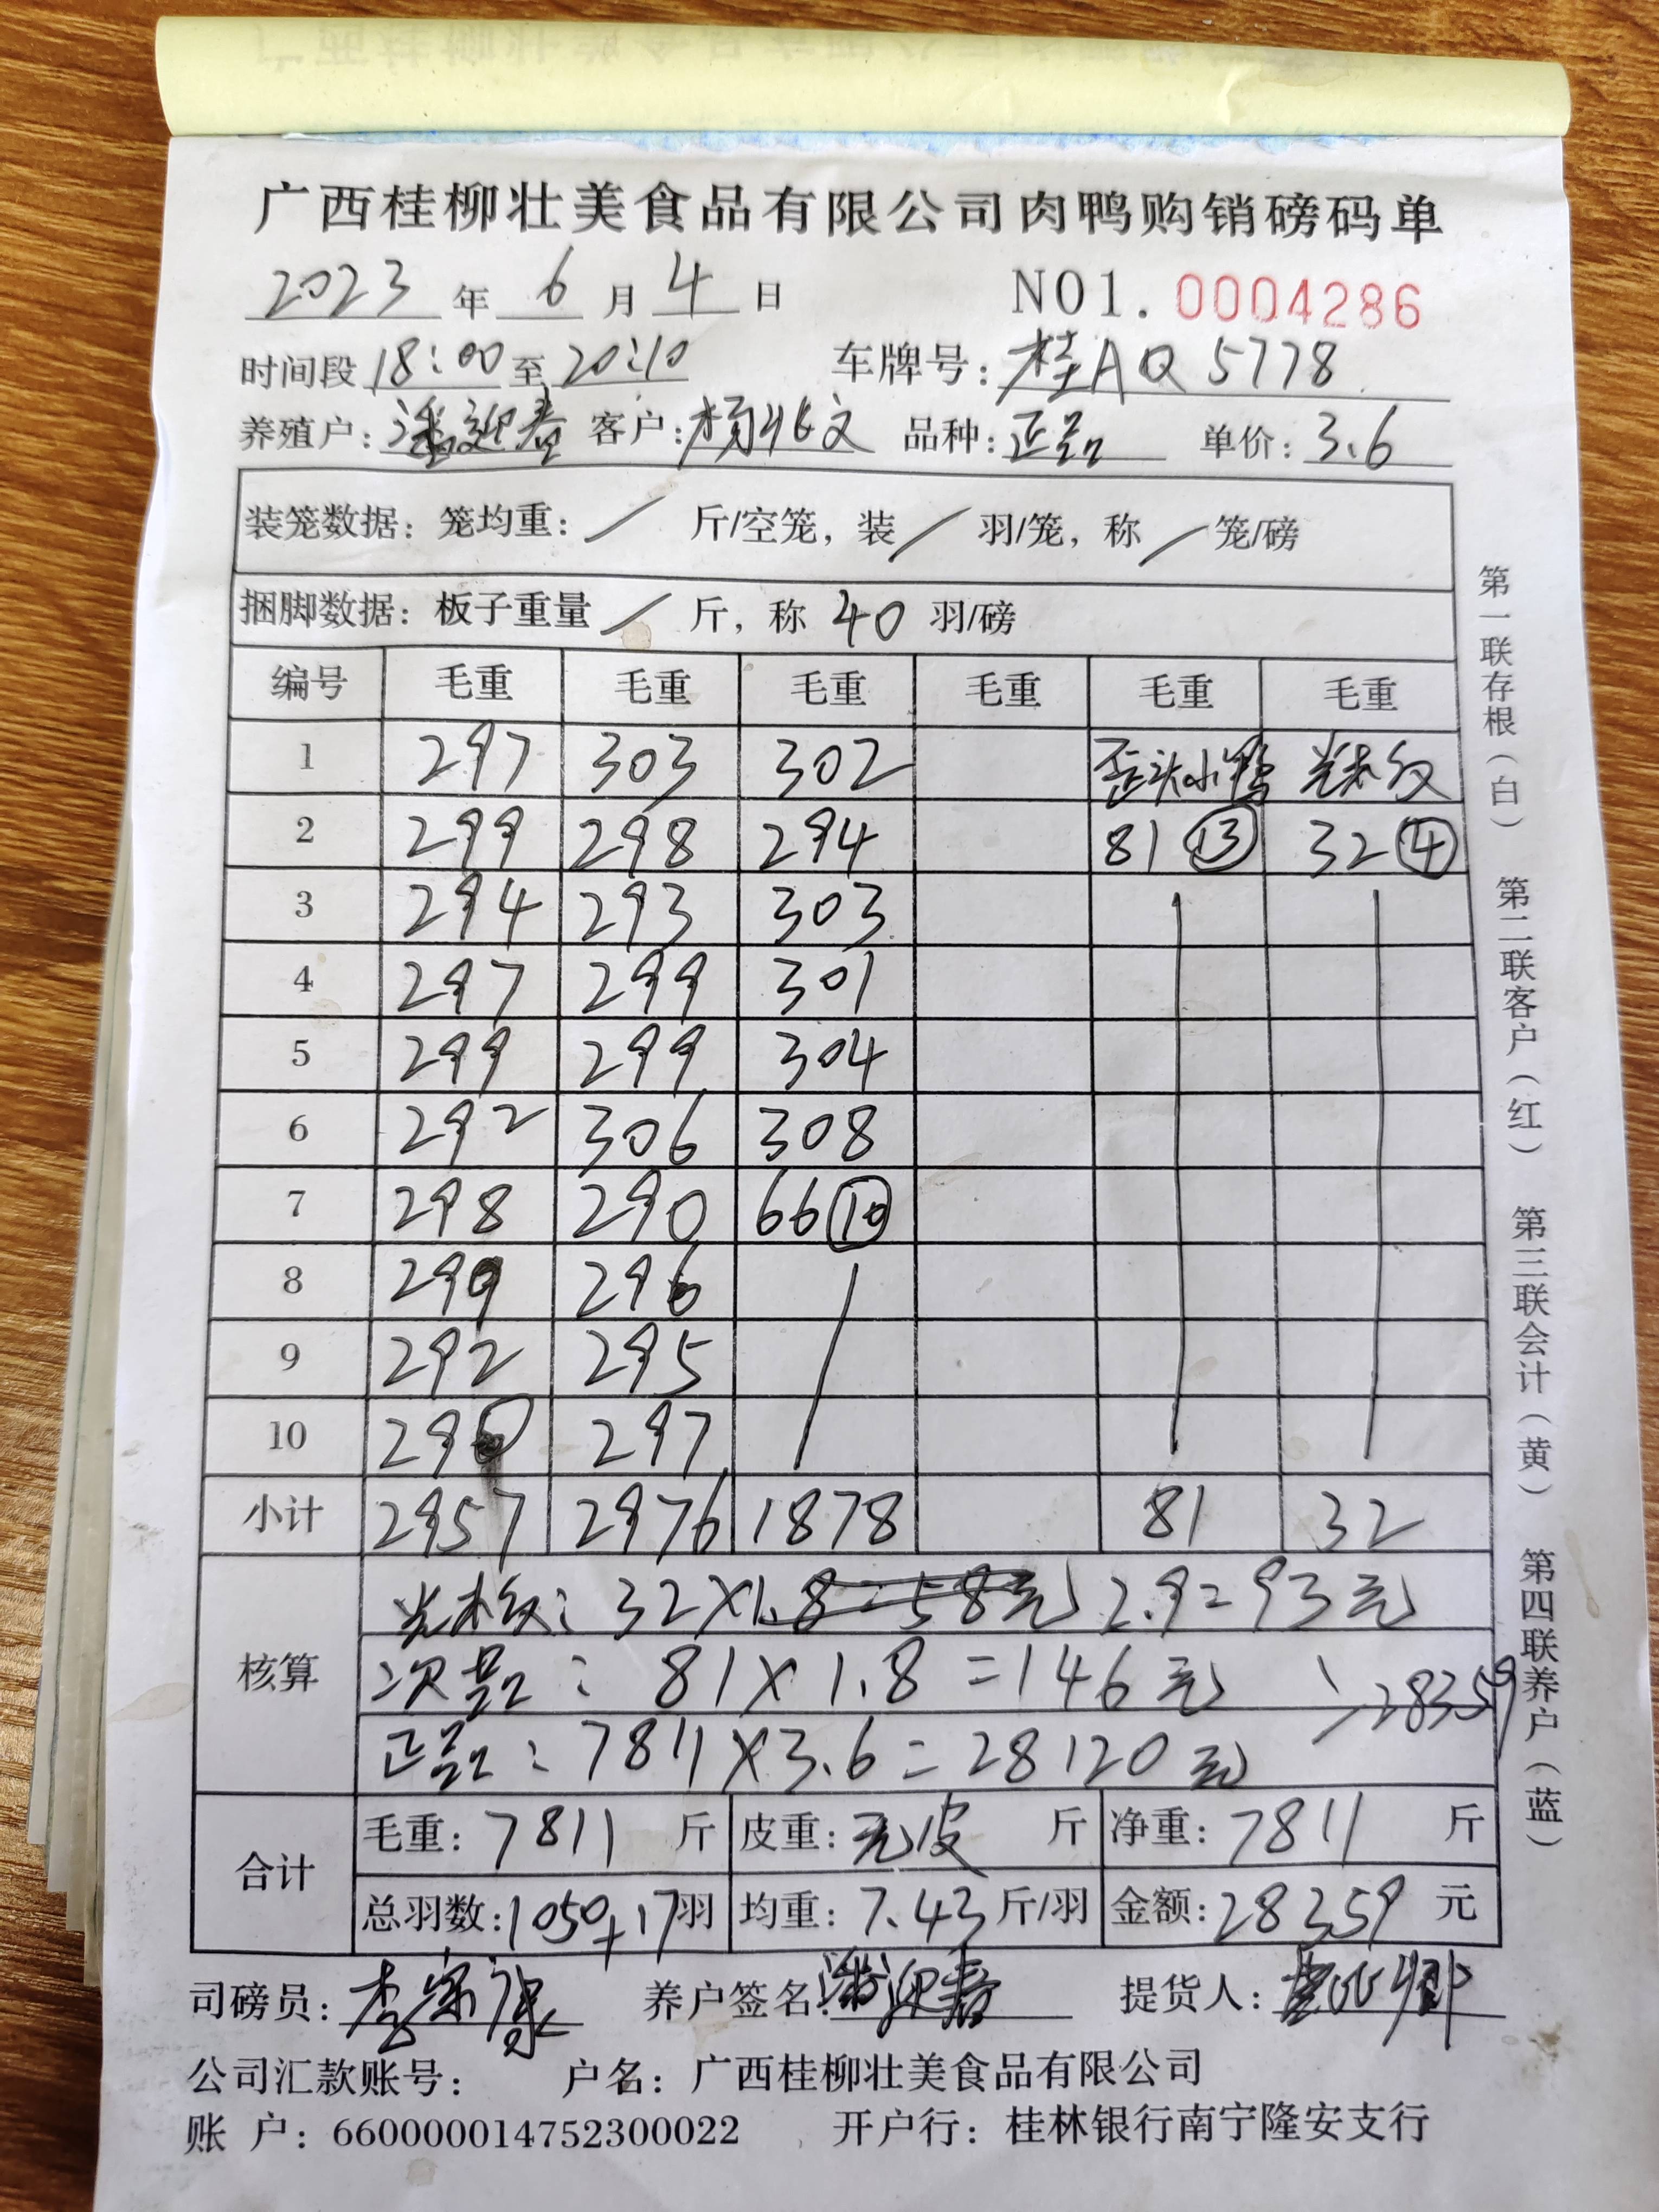 广西桂柳壮美食品有限公司肉鸭购销磅码单
2023 年 6 月 4 日 NO1. 0004286
时间段 18:00 至 20:10 车牌号: 桂AQ5778
养殖户: 潘迎春 客户: 杨兆文 品种: 正品 单价: 3.6
装笼数据: 笼均重: / 斤/空笼, 装 / 羽/笼, 称 / 笼/磅
捆脚数据: 板子重量 / 斤, 称 40 羽/磅
编号 毛重 毛重 毛重 毛重 毛重 毛重
1 297 303 302 歪头小鸭
2 299 298 294 81 ⑬ 32 ④
3 294 293 303
4 297 299 301
5 299 299 304
6 292 306 308
7 298 290 66 ⑩
8 299 296
9 292 295
10 290 297
小计 2957 2976 1878 81 32
核算
: 32×1.8=58元 2.9=93元
次品: 81×1.8=146元 28359
正品: 7811×3.6=28120元
合计
毛重: 7811 斤 皮重: 无皮 斤 净重: 7811 斤
总羽数: 1050+17 羽 均重: 7.43 斤/羽 金额: 28359 元
司磅员: 李 养户签名: 潘迎春 提货人:
公司汇款账号: 户名: 广西桂柳壮美食品有限公司
账 户: 660000014752300022 开户行: 桂林银行南宁隆安支行
第一联存根(白) 第二联客户(红) 第三联会计(黄) 第四联养户(蓝)